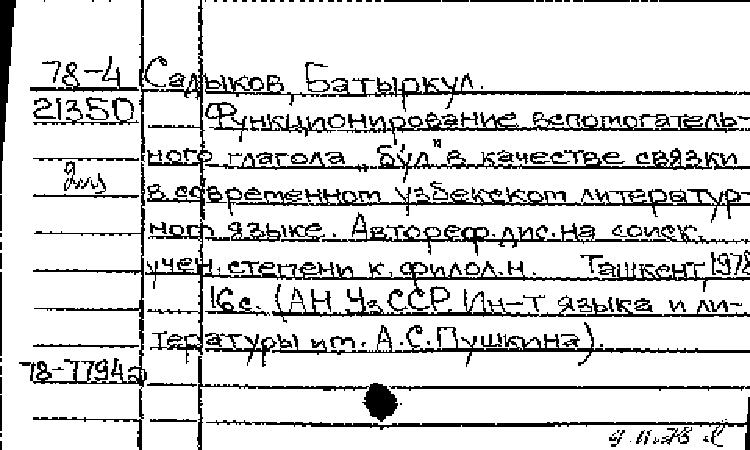 78-4 Садыков, Батыркул.
21350 Функционирование вспомогатель-
ного глагола "бўл" в качестве связки
в современном узбекском литератур-
ном языке. Автореф. дис. на соиск.
учен. степени к. филол. н. Ташкент, 1978
16 с. (АН УзССР. Ин-т языка и ли-
тературы им. А.С. Пушкина).
78-7794а